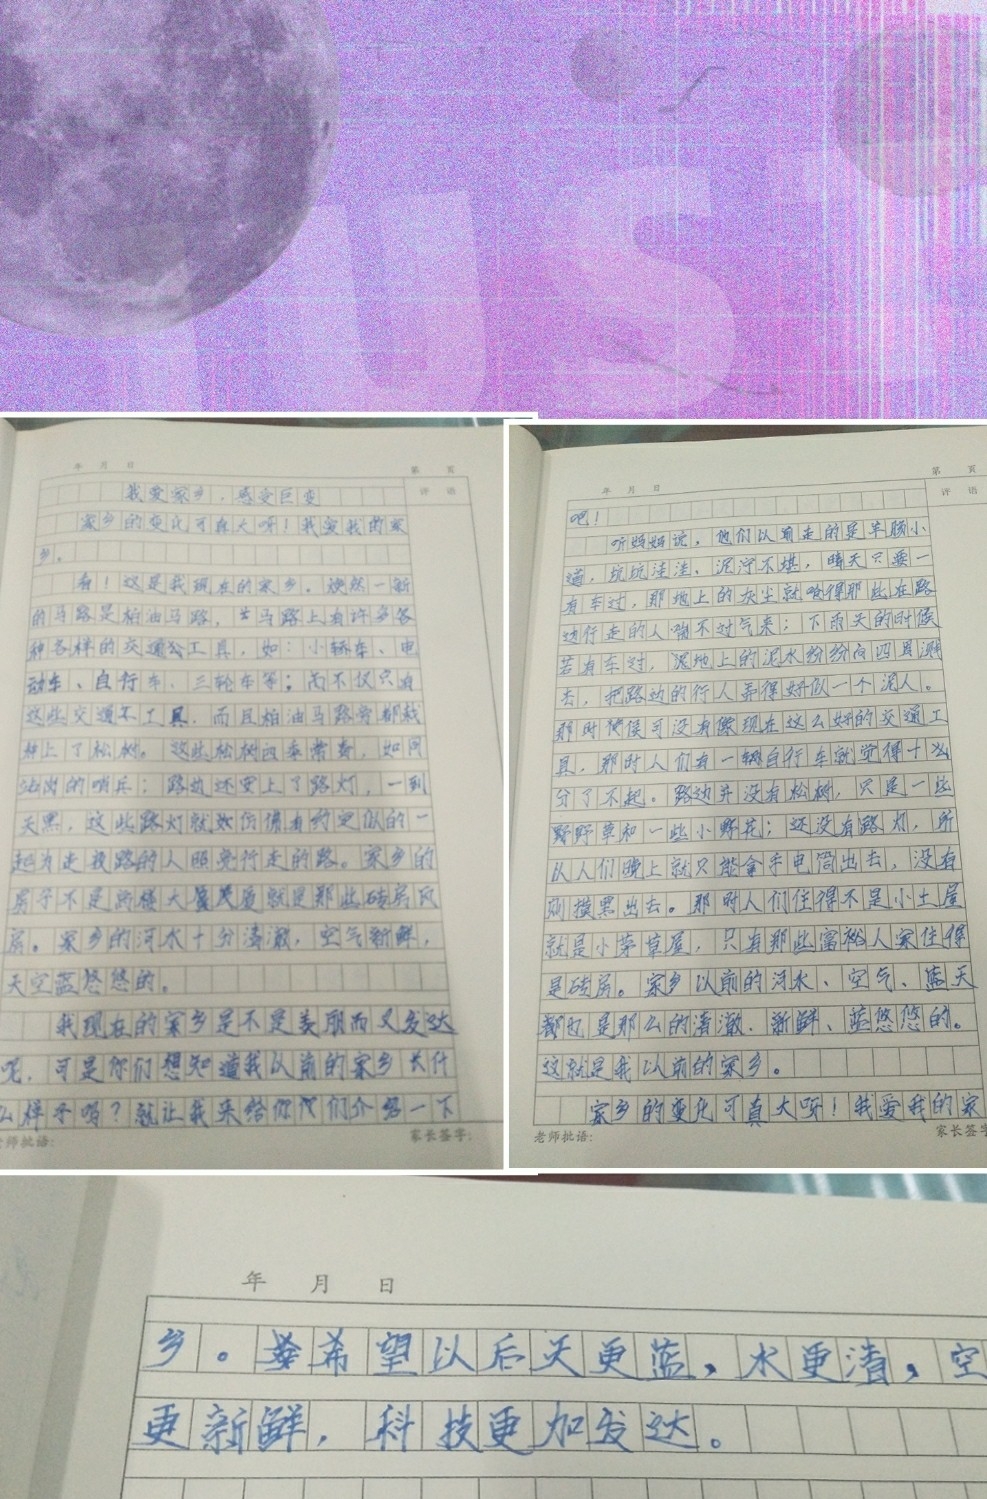 US
年 月 日
第 页
我爱家乡·感受巨变
评 语
家乡的变化可真大呀！我爱我的家
乡。
看！这是我现在的家乡。焕然一新
的马路是柏油马路，马路上有许多各
种各样的交通公工具，如：小轿车、电
动车、自行车、三轮车等；而不仅只有
这些交通工具，而且柏油马路旁都栽
种上了松树。这些松树四季常青，如同
站岗的哨兵；路边还安上了路灯，一到
天黑，这些路灯就如仿佛有约定似的一
起为走夜路的人照亮行走的路。家乡的
房子不是高楼大厦就是那些砖房瓦
房。家乡的河水十分清澈，空气新鲜，
天空蓝悠悠的。
我现在的家乡是不是美丽而又发达
呢，可是你们想知道我以前的家乡长什
么样子吗？就让我来给你们介绍一下
老师批语：
家长签字：
年 月 日
第 页
评 语
吧！
听妈妈说，他们以前走的是羊肠小
道，坑坑洼洼、泥泞不堪，晴天只要一
有车过，那地上的灰尘就呛得那些在路
边行走的人喘不过气来；下雨天的时候
若有车过，泥地上的泥水纷纷向四周溅
去，把路边的行人弄得好似一个泥人。
那时候可没有像现在这么好的交通工
具，那时人们有一辆自行车就觉得十分
分了不起。路边并没有松树，只是一些
野草和一些小野花；还没有路灯，所
以人们晚上就只能拿手电筒出去，没有
则摸黑出去。那时人们住得不是小土屋
就是小茅草屋，只有那些富裕人家住得
是砖房。家乡以前的河水、空气、蓝天
都也是那么的清澈、新鲜、蓝悠悠的。
这就是我以前的家乡。
家乡的变化可真大呀！我爱我的家
老师批语：
家长签字
年 月 日
乡。希望以后天更蓝，水更清，空
更新鲜，科技更加发达。